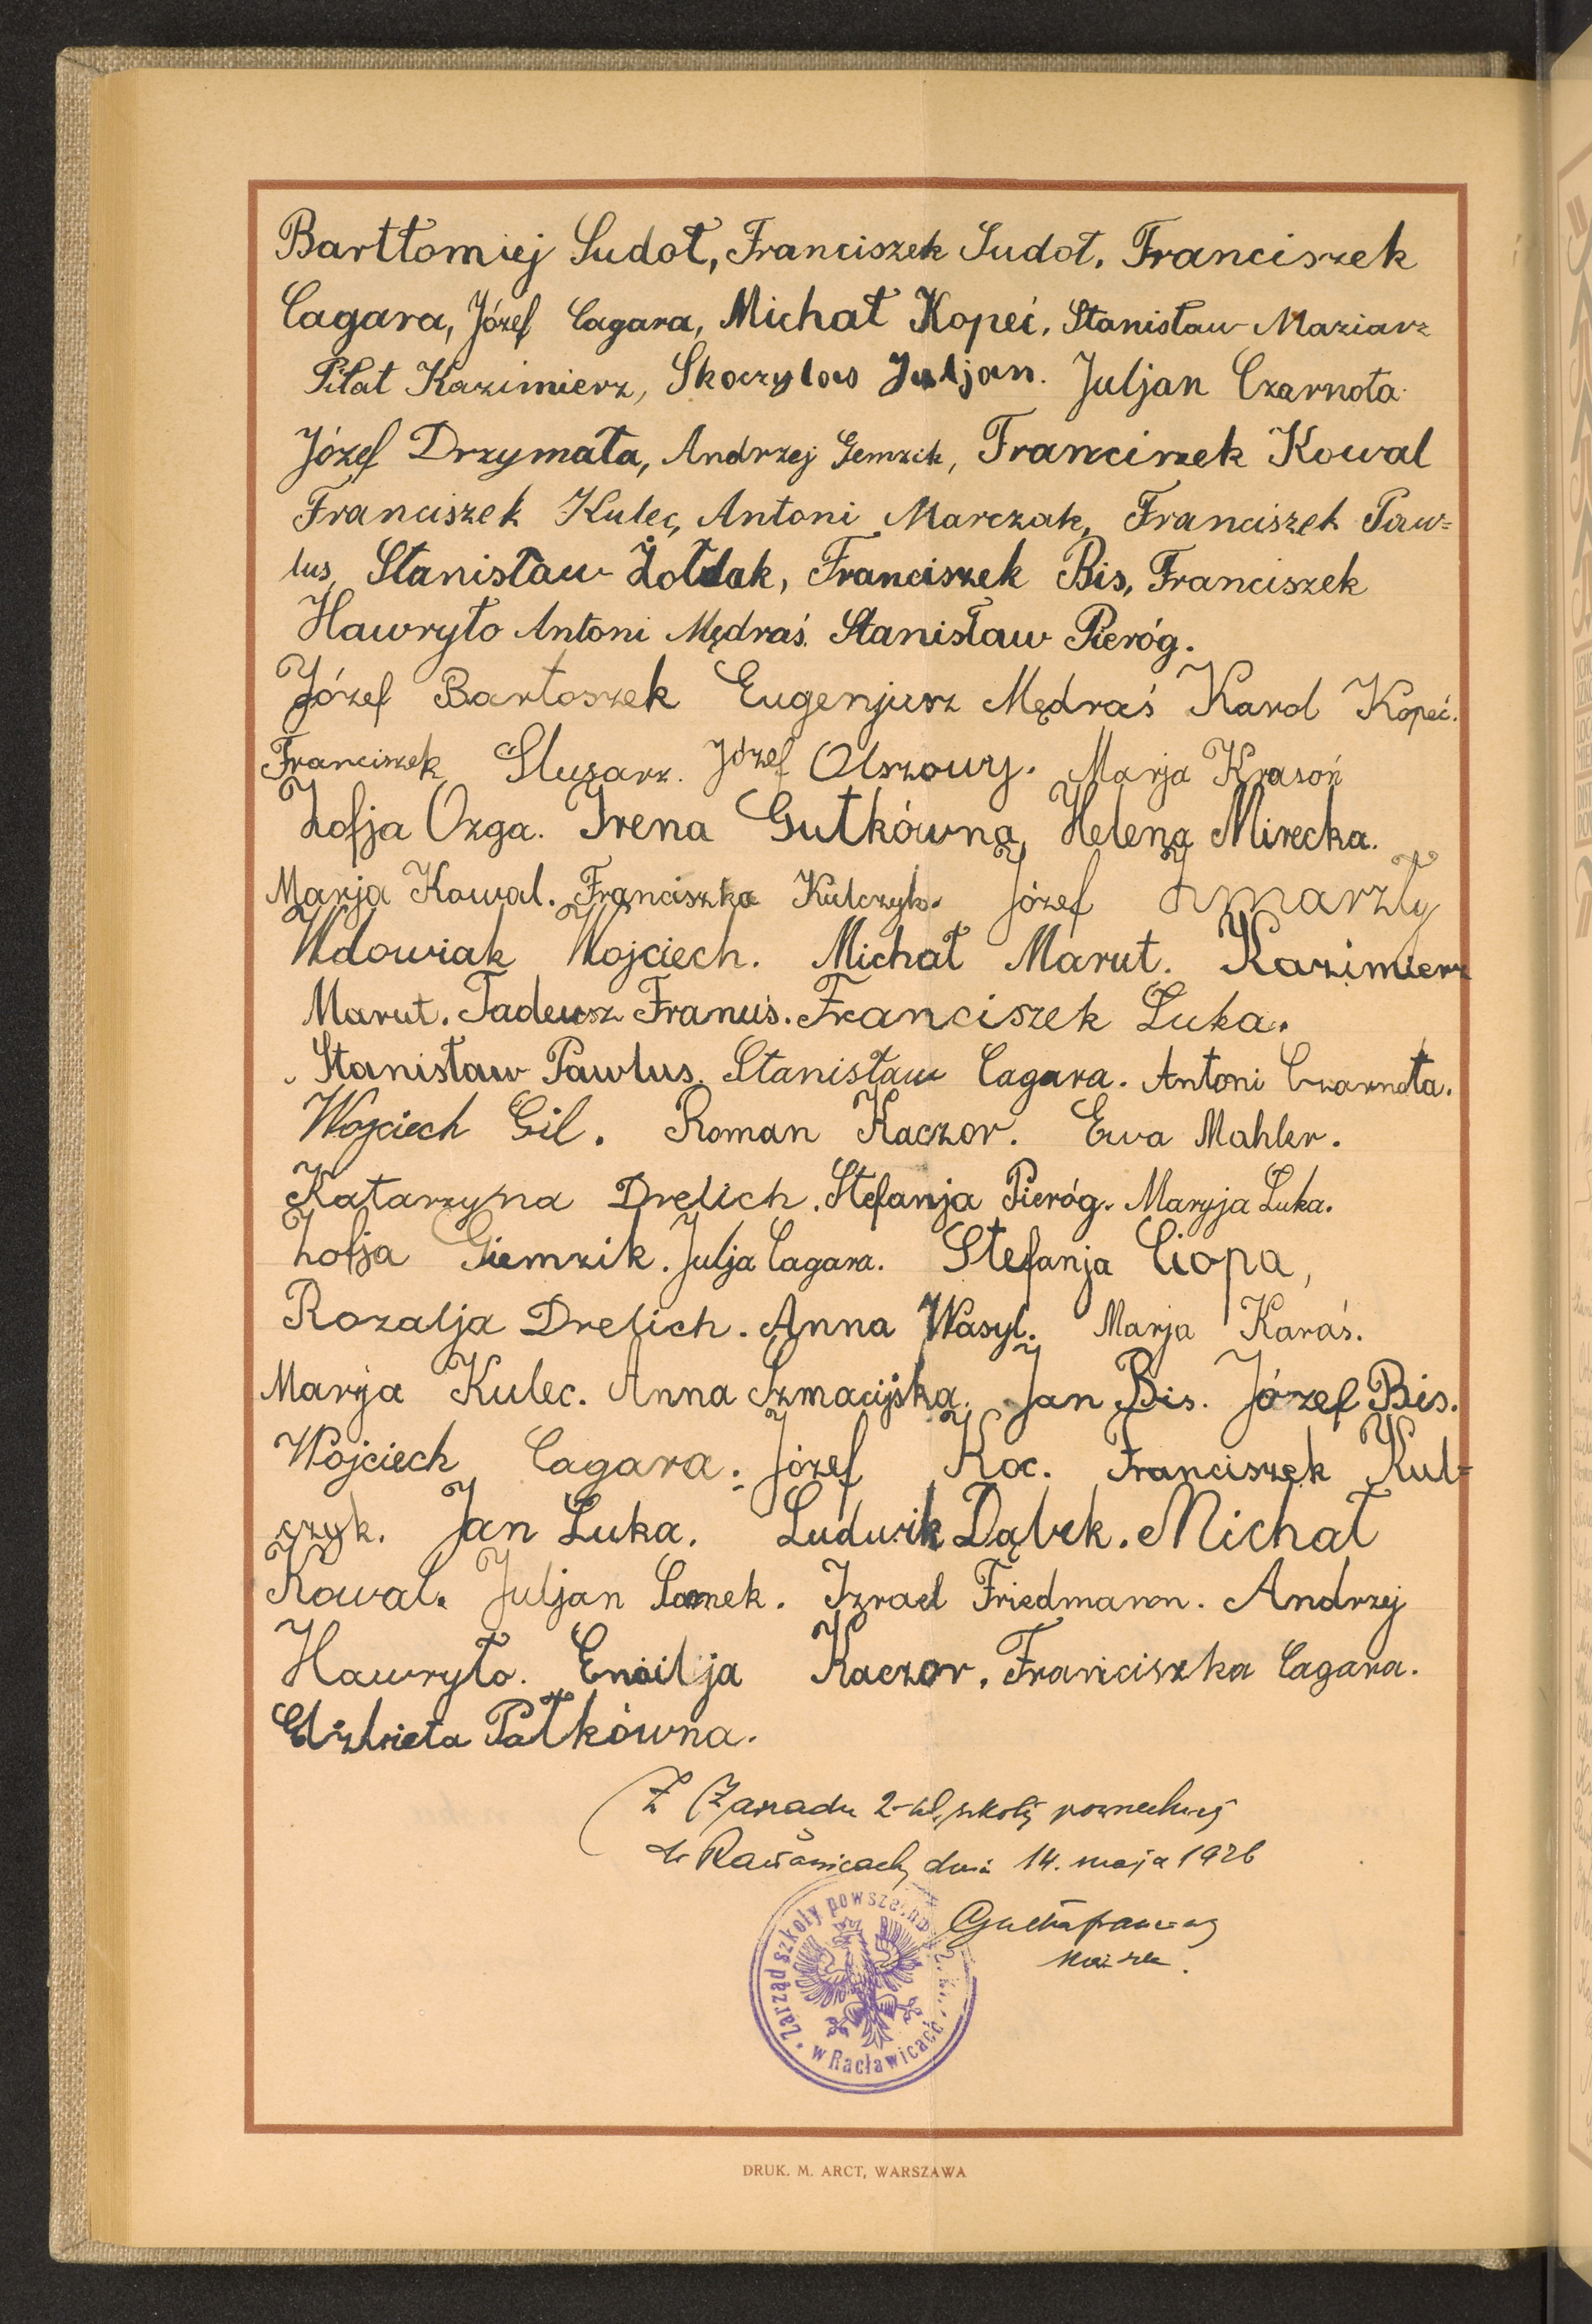 Bartłomiej Sudoł, Franciszek Sudoł, Franciszek
Cagara, Józef Cagara, Michał Kopeć, Stanisław Maziarz
Piłat Kazimierz, Skoczylas Juljan. Juljan Czarnota
Józef Drzymała, Andrzej Gemzik, Franciszek Kowal
Franciszek Kulec, Antoni Marczak, Franciszek Paw=
lus, Stanisław Żołdak, Franciszek Bis, Franciszek
Hawryło Antoni Mędraś. Stanisław Pieróg.
Józef Bartoszek Eugenjusz Mędraś Karol Kopeć.
Franciszek Ślusarz. Józef Olszowy. Marja Krasoń
Zofja Ozga. Irena Gutkówna, Helena Mirecka.
Marja Kowal. Franciszka Kulczyk. Józef Zmarzły
Wdowiak Wojciech. Michał Marut. Kazimierz
Marut. Tadeusz Franuś. Franciszek Łuka.
Stanisław Pawlus. Stanisław Cagara. Antoni Czarnota.
Wojciech Gil. Roman Kaczor. Ewa Mahler.
Katarzyna Drelich. Stefanja Pieróg. Maryja Łuka.
Zofja Giemzik. Julja Cagara. Stefanja Ciopa,
Rozalja Drelich. Anna Wasyl. Marja Karaś.
Marja Kulec. Anna Szmacijska. Jan Bis. Józef Bis.
Wojciech Cagara. Józef Koc. Franciszek Kul=
czyk. Jan Łuka. Ludwik Dąbek. Michał
Kowal. Juljan Samek. Izrael Friedmann. Andrzej
Hawryło. Emilja Kaczor. Franciszka Cagara.
Elżbieta Pałkówna.
Z Zarządu 2-kl. szkoły powszechnej
w Racławicach, dnia 14. maja 1926
Zarząd szkoły powszechnej 2. w Racławicach
DRUK. M. ARCT, WARSZAWA